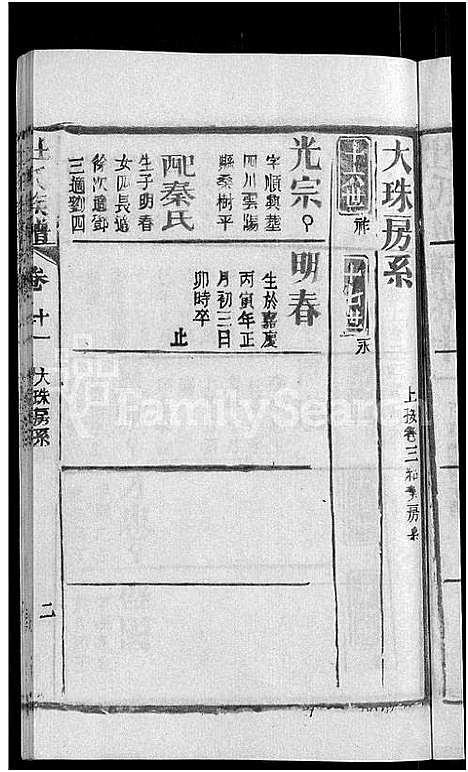 大珠房系
上接卷三和房系
世 祚
世 永
光宗
字順
四川雲陽
縣桑樹平
配秦氏
生子明春
女四長適
後次適鄧
三適劉四
明春
生於嘉慶
丙寅年正
月初三日
卯時卒
止
氏族譜
卷十一
大珠房系
二
FamilySearch